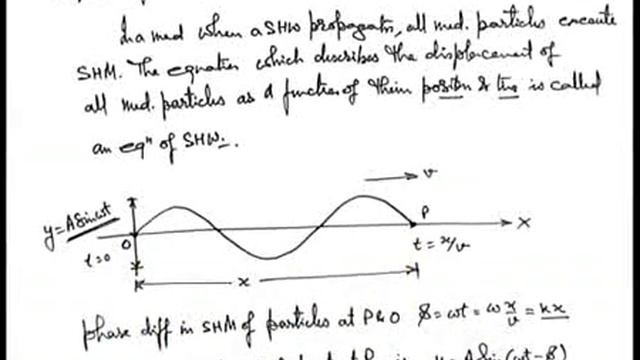 In a med when a SHW propagates, all med. particles execute
SHM. The equation which describes the displacement of
all med. particles as a function of their position & time is called
an eqⁿ of SHW.
v
y=A sin ωt
P
O
X
t=0
t = x/v
x
phase diff in SHM of particles at P & O δ = ωt = ω x/v = kx